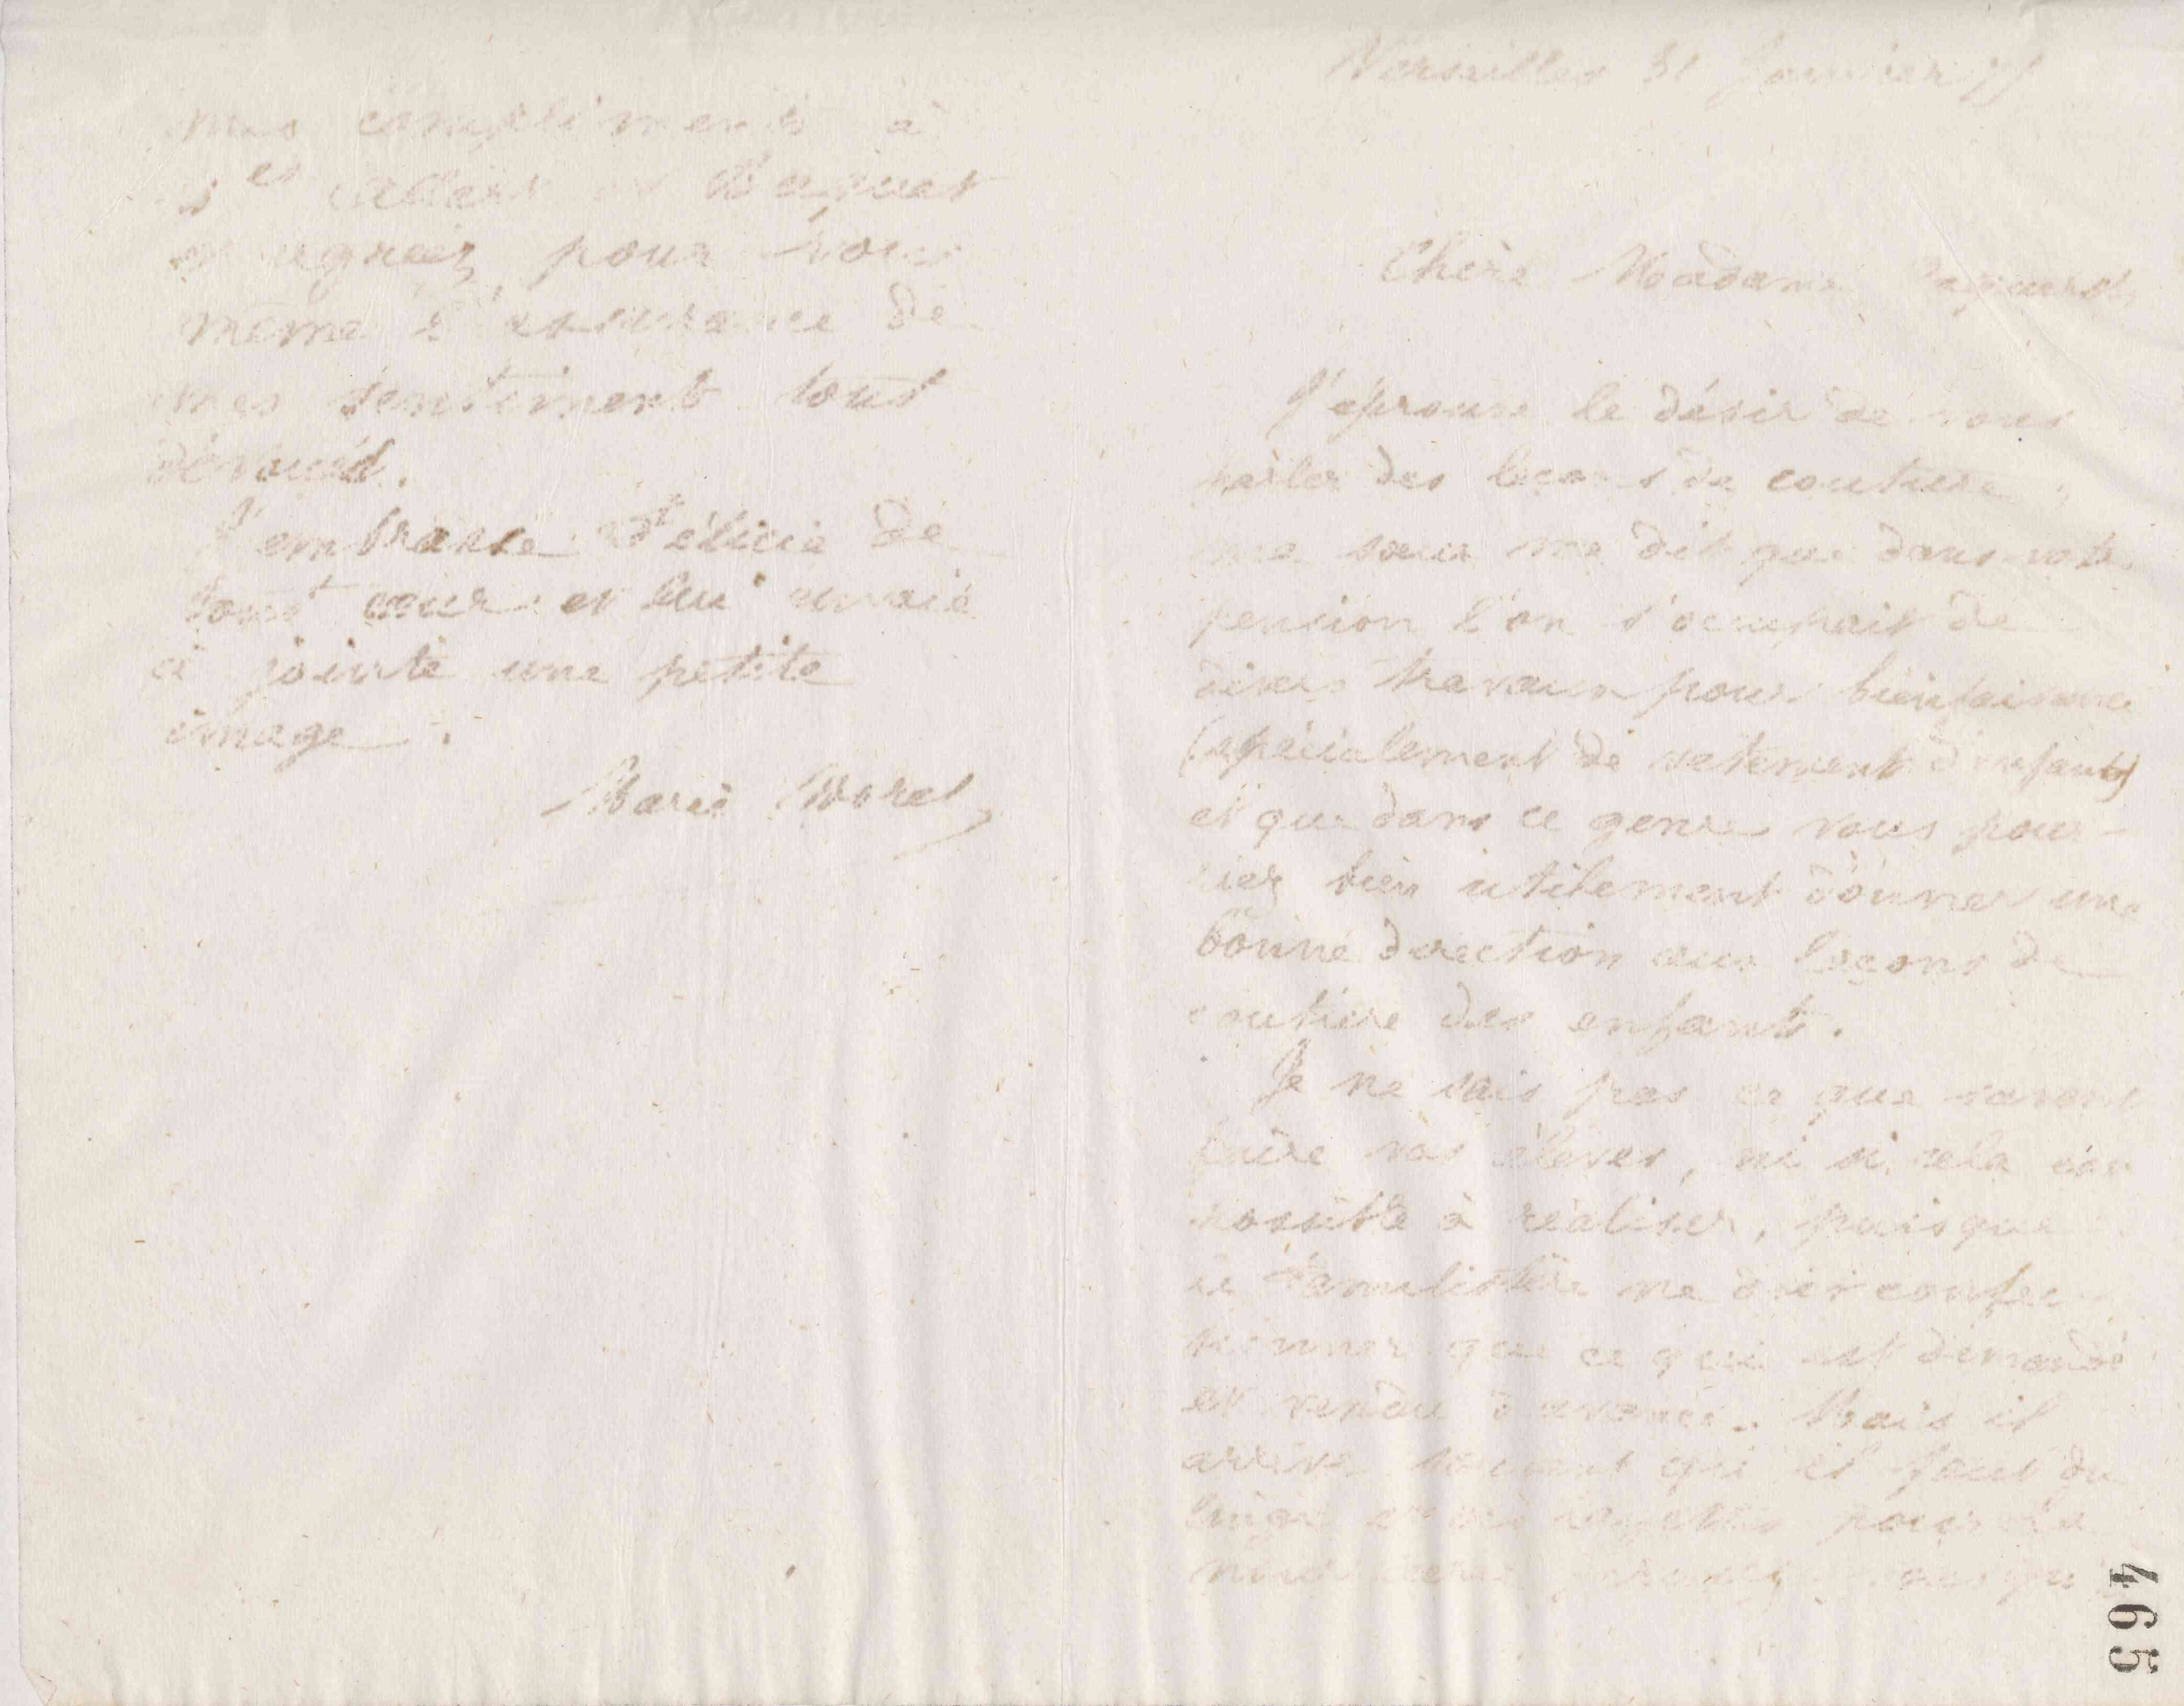 Versailles 31 Janvier 77
Chère Madame
J'éprouve le désir de vous
parler des leçons de couture
ma sœur me dit que dans votre
pension l'on s'occupait de
divers travaux pour bienfaisance
(spécialement de vetement d'enfants)
et que dans ce genre vous pour-
riez bien utilement donner une
bonne direction aux leçons de
couture des enfants.
Je ne sais pas ce que savent
faire vos élèves, ni si cela est
possible à réaliser, puisque
le Familistère ne doit confec
tionner que ce qui est demandé
et vendu d'avance. Mais il
arrive souvent qu'il faut du
linge pour
mes compliments à
et agréez pour vous
même l'assurance de
mes sentiment tout
dévoués.
J'embrasse Félicie de
tout cœur et lui envoie
ci jointe une petite
image.
Marie Moret
465